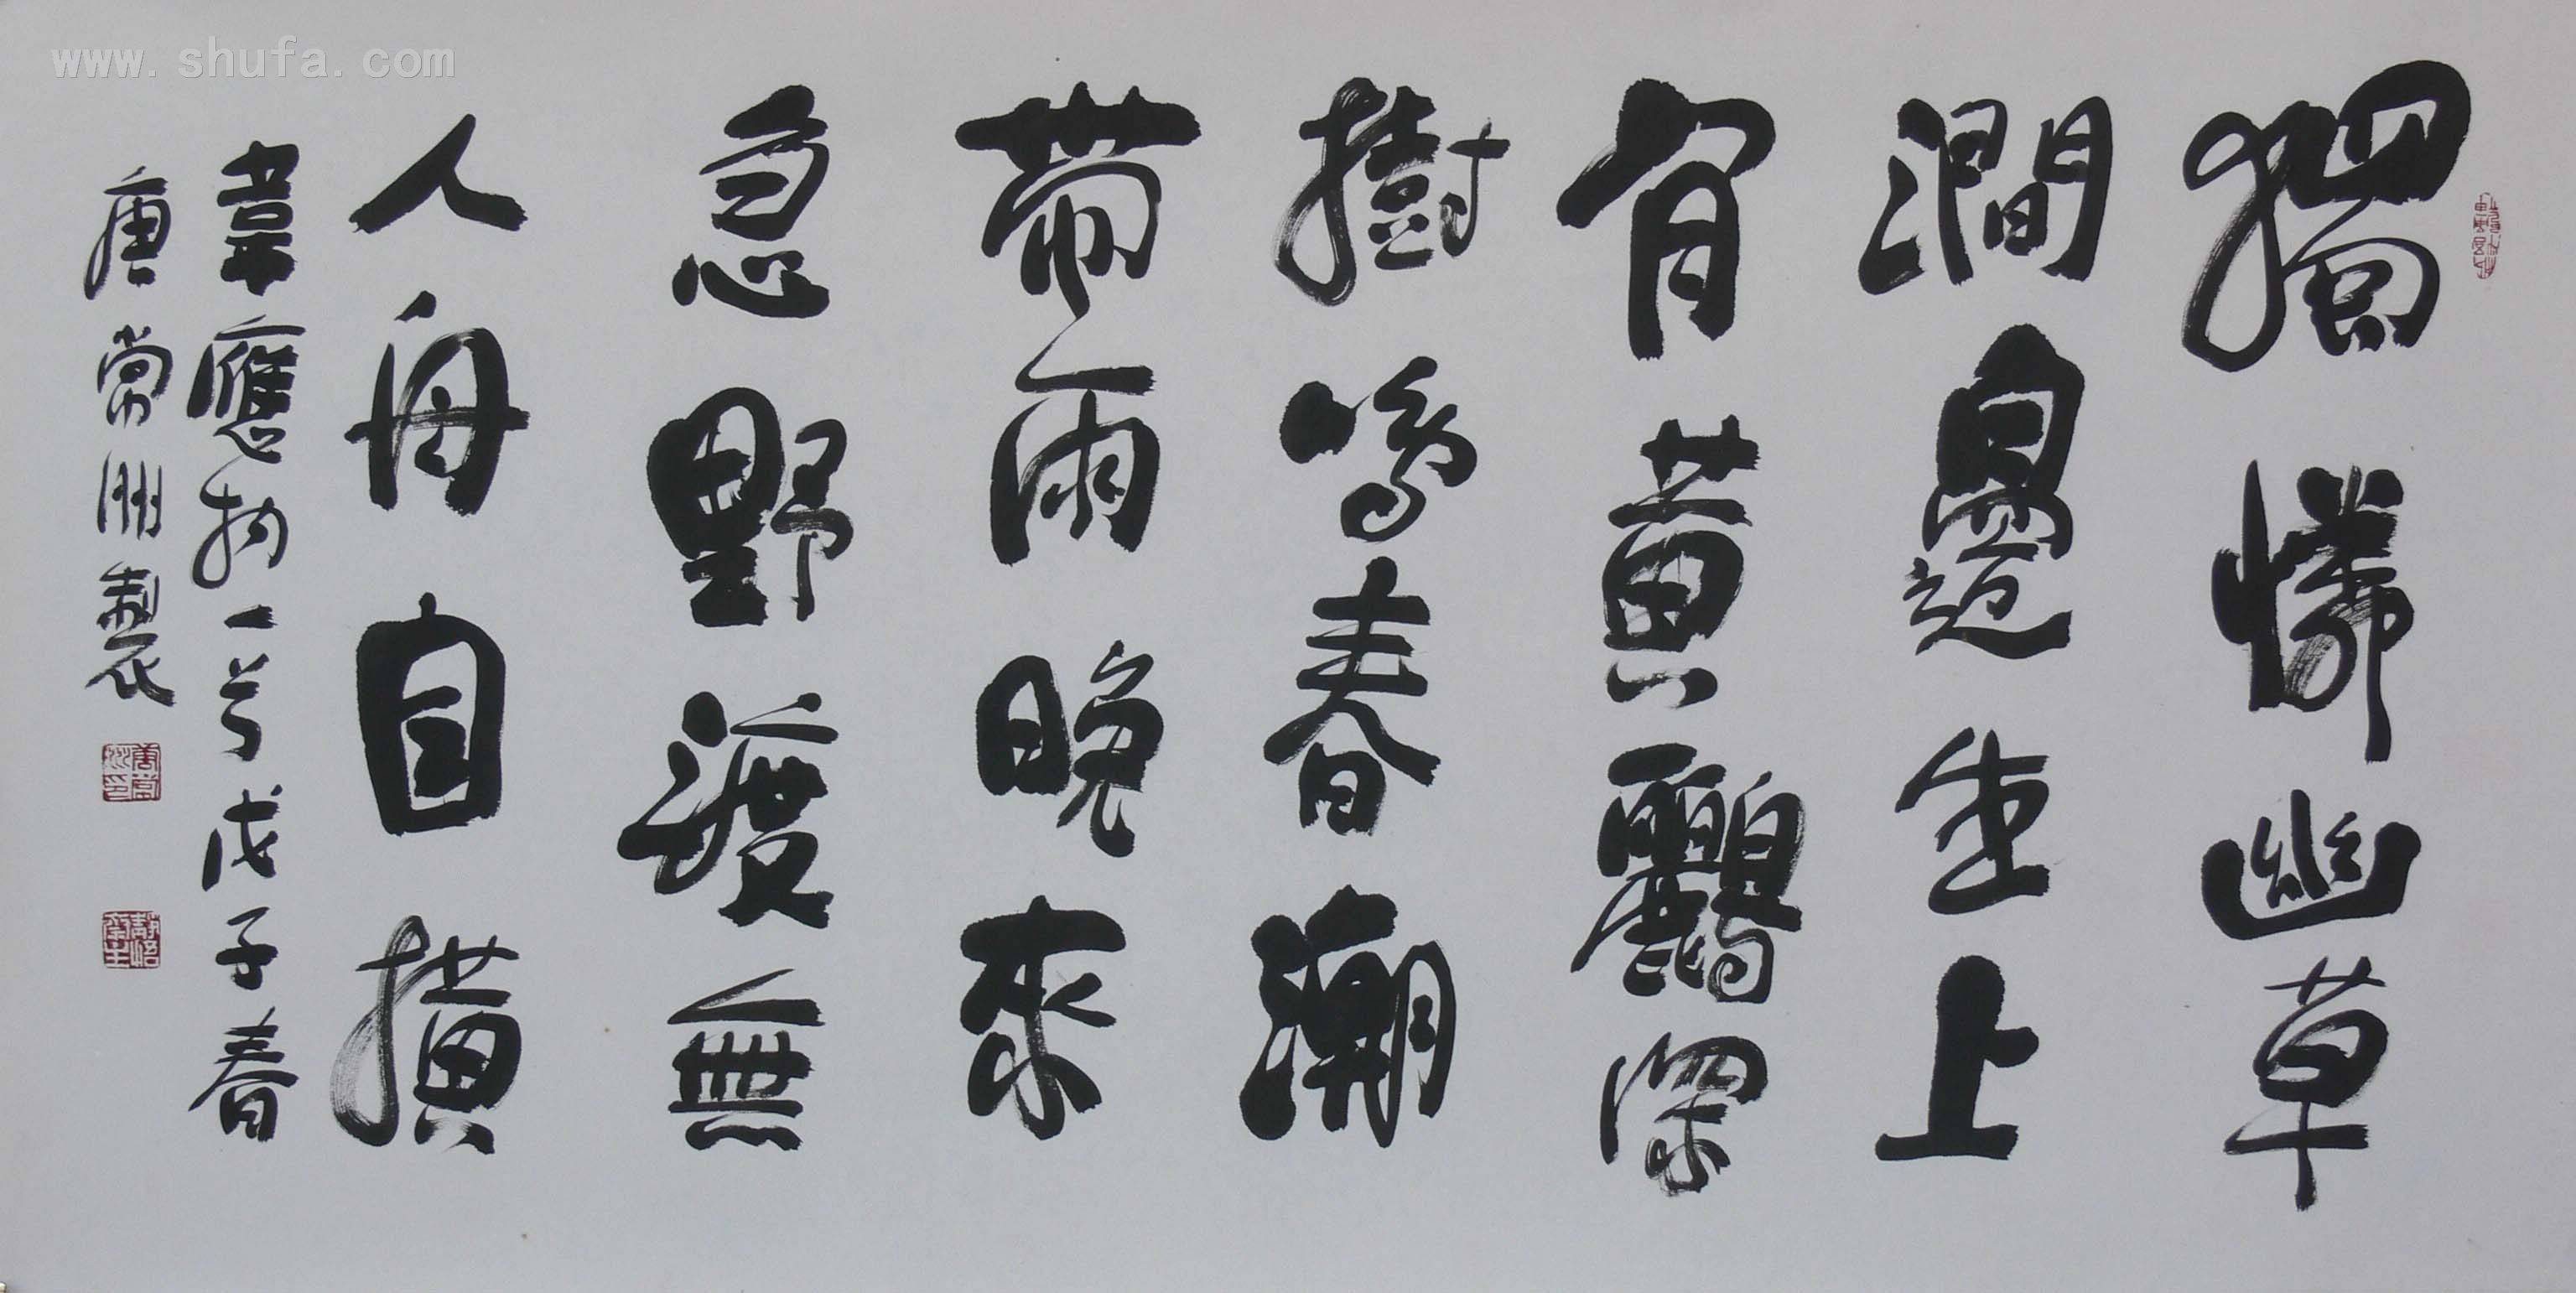 獨憐幽草
澗邊生上
有黃鸝深
樹鳴春潮
帶雨晚來
急野渡無
人舟自橫
韋應物一首戊子春
唐常州製
www.shufa.com